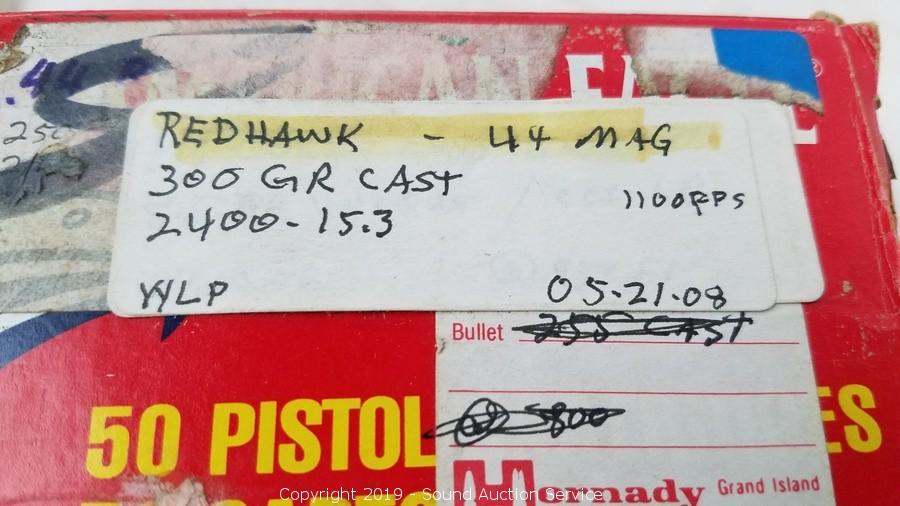 .44
250
REDHAWK - 44 MAG
300 GR CAST
1100FPS
2400-15.3
WLP
05-21-08
Bullet 255 CAST
5800
50 PISTOL
ES
Hornady Grand Island
Copyright 2019 - Sound Auction Service